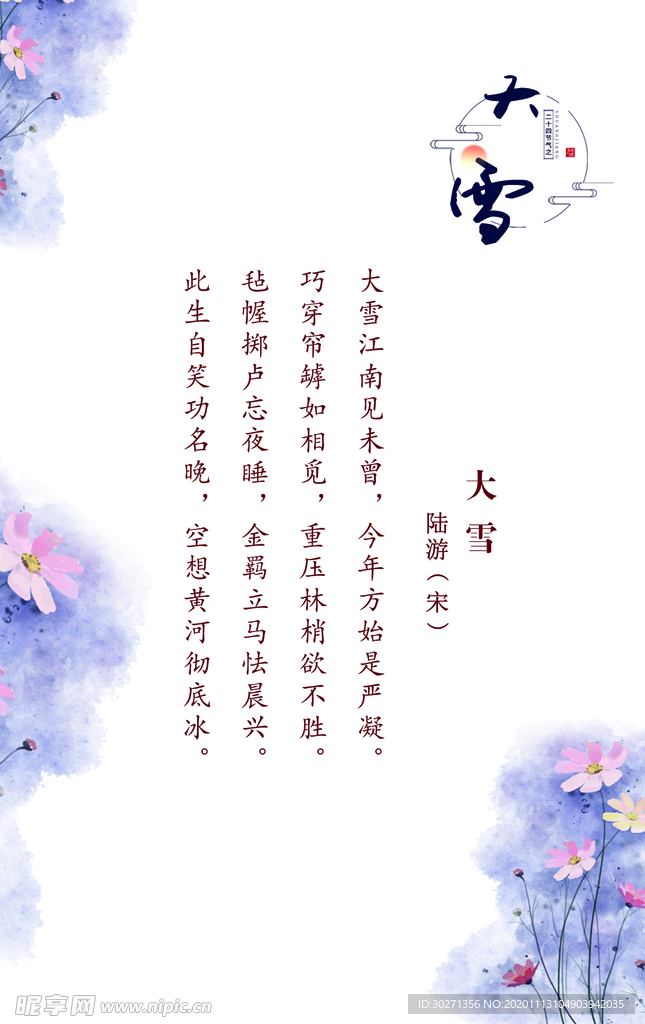 大雪
二十四节气之
SHUANGJIANG
大雪
陆游（宋）
大雪江南见未曾，今年方始是严凝。
巧穿帘罅如相觅，重压林梢欲不胜。
毡幄掷卢忘夜睡，金羁立马怯晨兴。
此生自笑功名晚，空想黄河彻底冰。
昵享网 www.nipic.cn
ID:30271356 NO:20201113104903942035